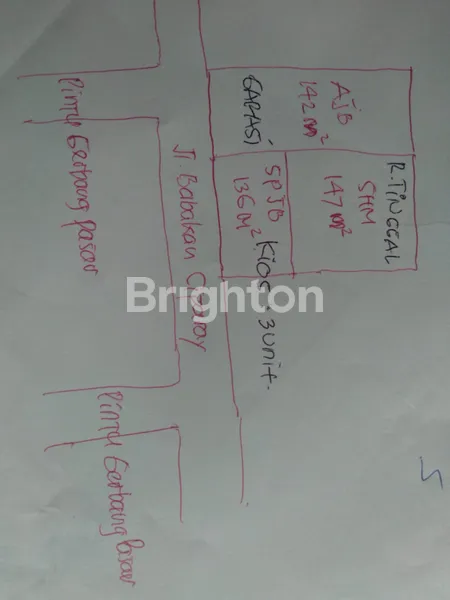 Pintu Gerbang pasar
Jl. Babakan Ciparay
GARASI
AJB
142 m²
R.TINGGAL
SHM
147 m²
SPJB
136 m²
Kios 3 unit.
Brighton
Pintu Gerbang Pasar
5